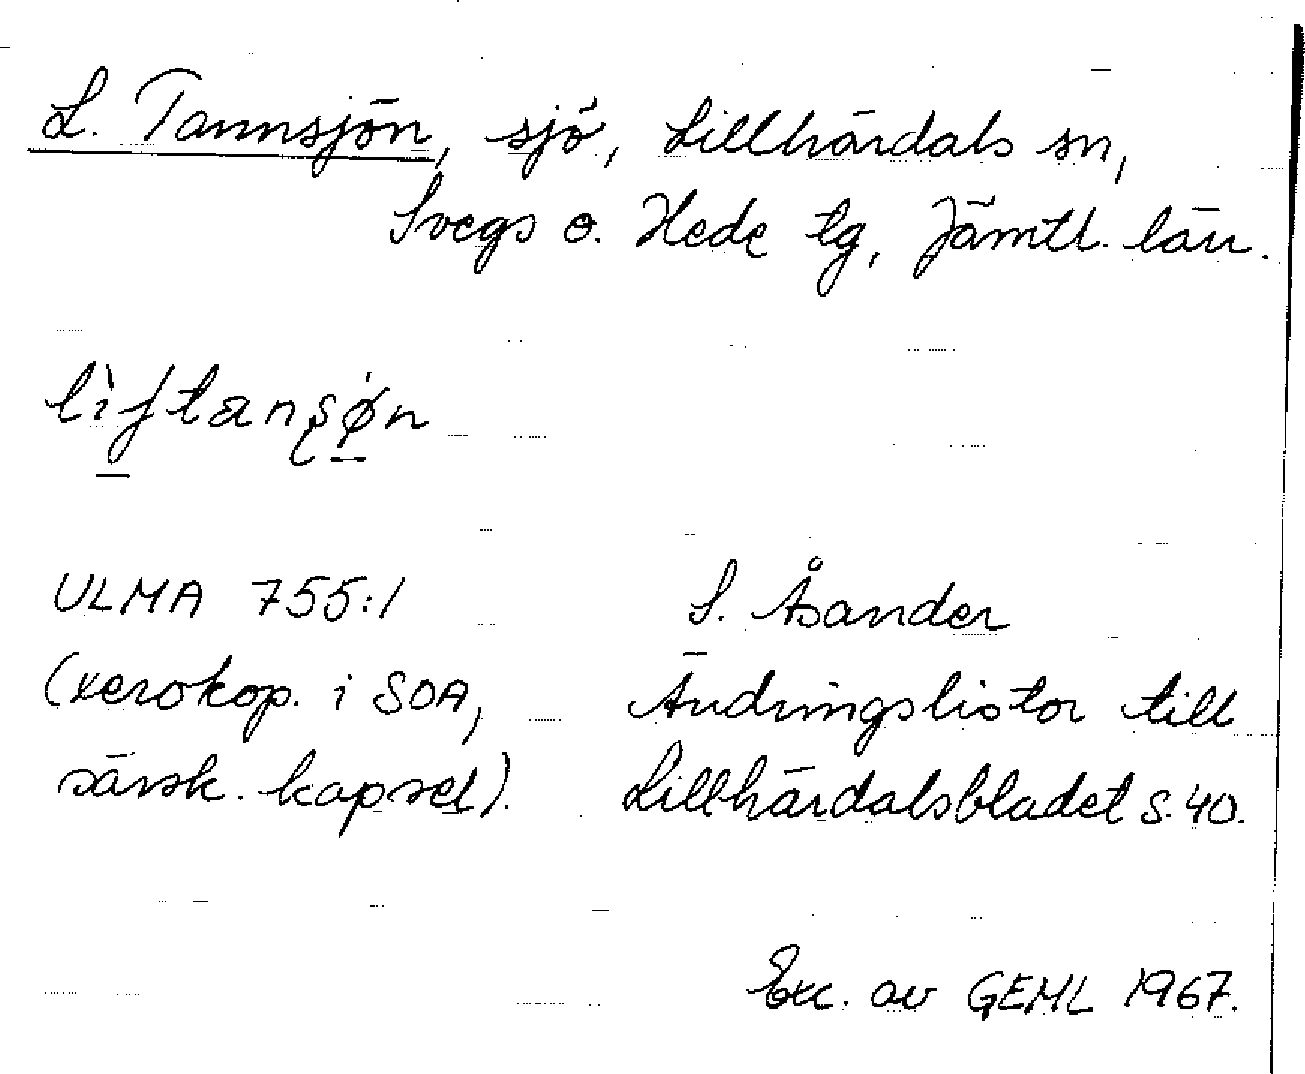 L. Tannsjön, sjö, Lillhärdals sn,
Svegs o. Hede tg, Jämtl. län.
lìʃtanşøn
ULMA 755:1
S. Åsander
(xerokop. i SOA,
Ändringslistor till
särsk. kapsel).
Lillhärdalsbladet s. 40.
Exc. av GEML 1967.